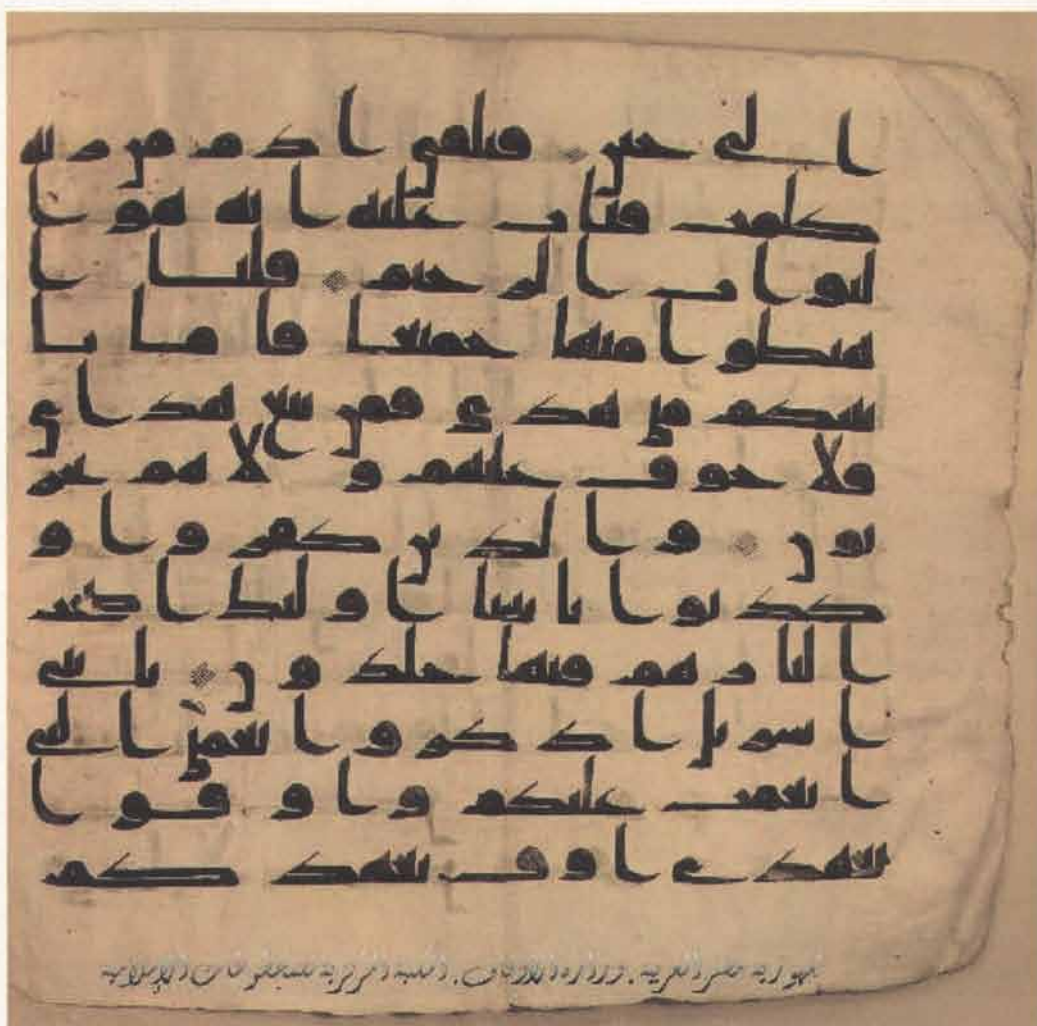 الى حين فتلقى ادم من ربه
كلمت فتاب عليه انه هو ا
لتواب الرحيم قلنا ا
هبطوا منها جميعا فاما يا
تينكم مني هدى فمن تبع هداي
فلا خوف عليهم ولا هم يحز
نون والذين كفروا و
كذبوا باييتنا اولئك اصحب
النار هم فيها خلدون يبني
اسريل اذكروا نعمتي التي
انعمت عليكم واوفوا
بعهدي اوف بعهدكم
جمهورية مصر العربية . وزارة الأوقاف . المكتبة المركزية للمخطوطات الإسلامية